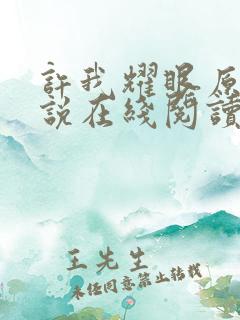 許我耀眼原
説在綫閱讀
王先生
未经同意禁止转载